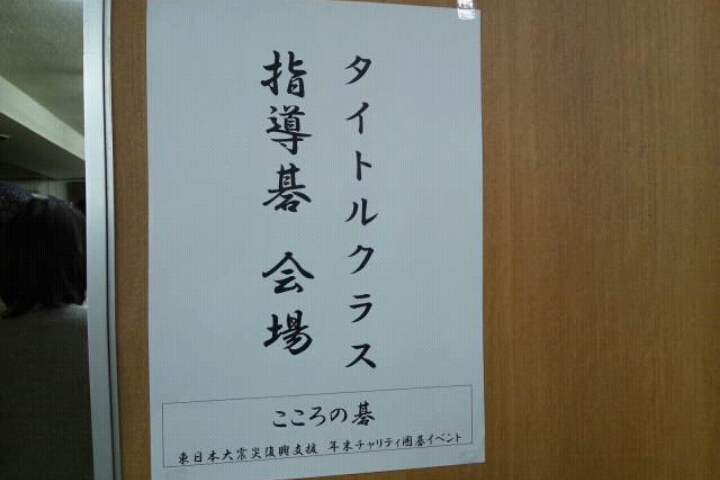 タイトルクラス
指導碁 会場
こころの碁
東日本大震災復興支援 年末チャリティ囲碁イベント